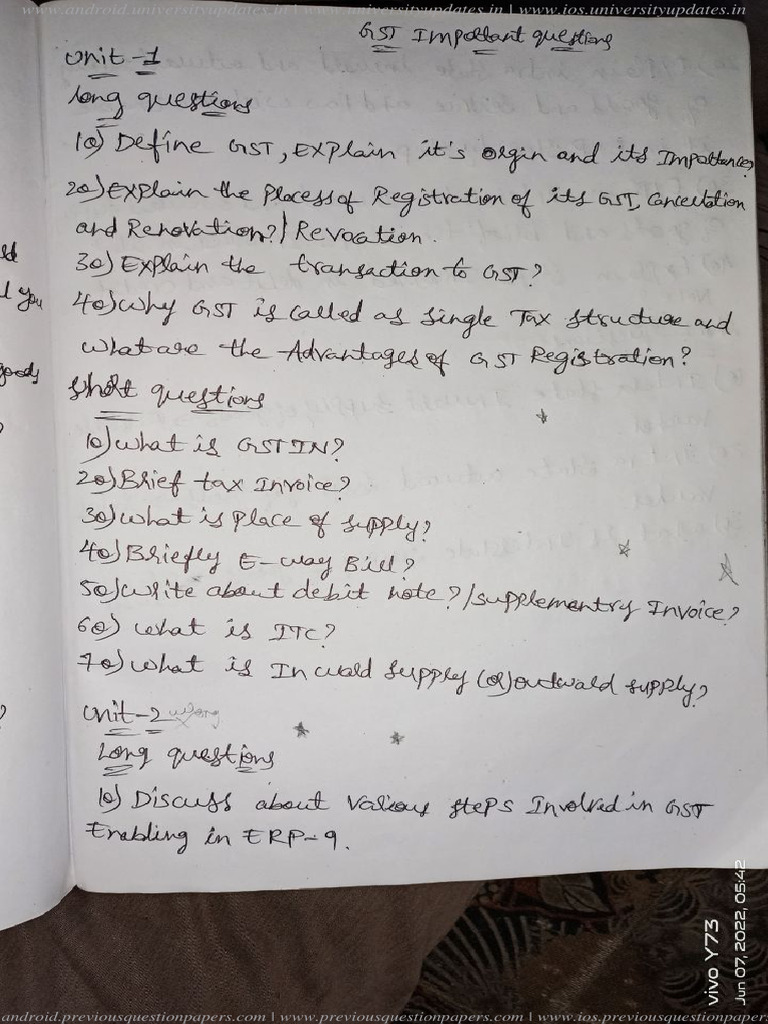 android.universityupdates.in | www.universityupdates.in | www.ios.universityupdates.in
GST Important questions
Unit-1
long questions
1Q) Define GST, Explain it's orgin and its Importance?
2Q) Explain the Process of Registration of its GST, Cancellation
and Renovation?/ Revocation.
3Q) Explain the transaction to GST?
4Q) Why GST is called as single Tax structure and
what are the Advantages of GST Registration?
short questions
1Q) what is GSTIN?
2Q) Brief tax Invoice?
3Q) what is place of supply?
4Q) Briefly E-way Bill?
5Q) write about debit note?/supplementry Invoice?
6Q) what is ITC?
7Q) what is Inward supply (or) outward supply?
Unit-2
Long questions
1Q) Discuss about various steps Involved in GST
Enabling in ERP-9.
l you
goods
vivo Y73
Jun 07, 2022, 05:42
android.previousquestionpapers.com | www.previousquestionpapers.com | www.ios.previousquestionpapers.com